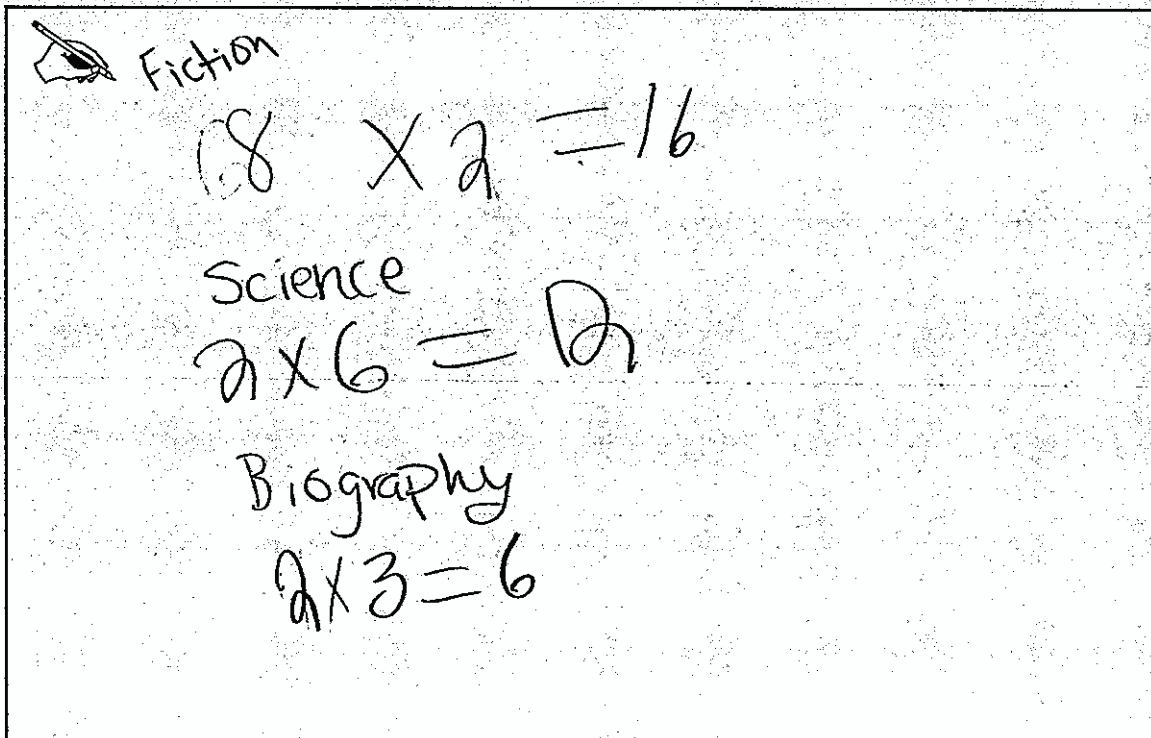 Fiction
8 × 2 = 16
Science
2 × 6 = 12
Biography
2 × 3 = 6